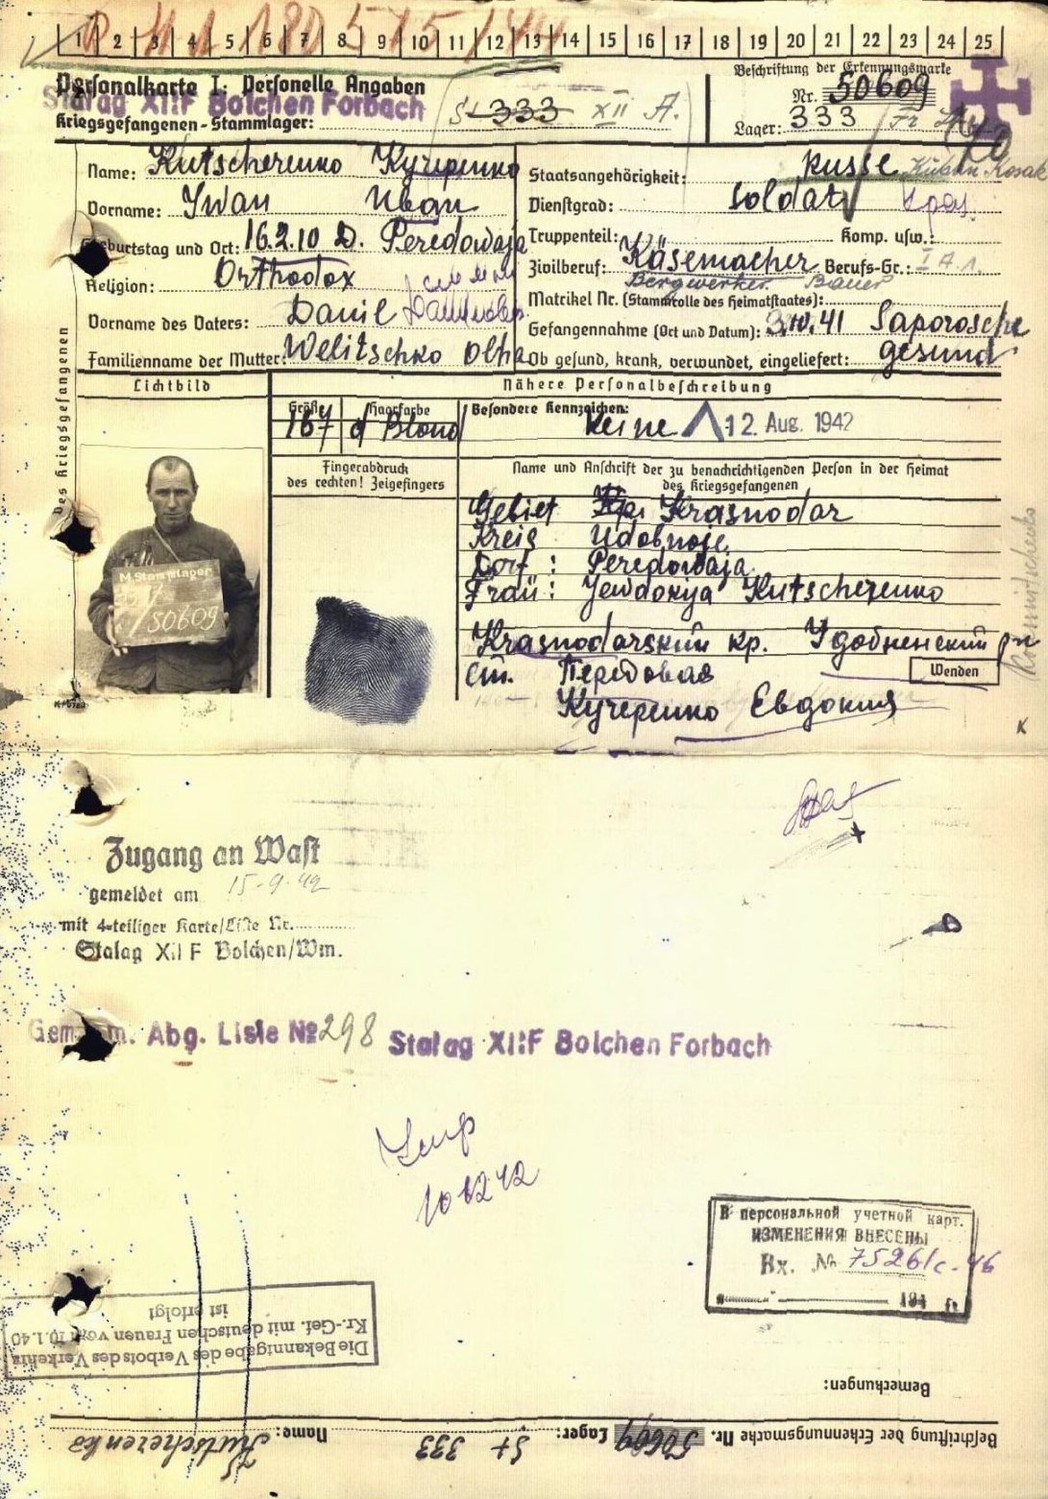 1 2 3 4 5 6 7 8 9 10 11 12 13 14 15 16 17 18 19 20 21 22 23 24 25
Personalkarte I: Personelle Angaben
Stalag XII F Bolchen Forbach
Kriegsgefangenen-Stammlager: St 333 XII A.
Beschriftung der Erkennungsmarke
Nr. 50609
Lager: 333
Name: Kutscherenko Кучеренко
Vorname: Iwan Иван
Geburtstag und Ort: 16.2.10 D. Peredowaja
Religion: Orthodox
Vorname des Vaters: Danil
Familienname der Mutter: Welitschko Olha
Staatsangehörigkeit: Russe Kuban Kosak
Dienstgrad: Soldat
Truppenteil: Komp. usw.:
Zivilberuf: Käsemacher Berufs-Gr.: I A 1.
Bergwerker Bauer
Matrikel Nr. (Stammrolle des Heimatstaates):
Gefangennahme (Ort und Datum): 3.10.41 Saporosche
Ob gesund, krank, verwundet, eingeliefert: gesund
Des Kriegsgefangenen
Lichtbild
Nähere Personalbeschreibung
Größe Haarfarbe Besondere Kennzeichen:
167 d Blond Keine 12. Aug. 1942
Fingerabdruck
des rechten! Zeigefingers
Name und Anschrift der zu benachrichtigenden Person in der Heimat
des Kriegsgefangenen
Gebiet Krasnodar
Kreis Udobnoje
Dorf : Peredowaja
Frau : Jewdokija Kutscherenko
Krasnodarский кр. Удобненский рн
ст. Передовая
Кучеренко Евдокия
Wenden
M.Stammlager
50609
Zugang an Wast
gemeldet am 15-9-42
mit 4-teiliger Karte/Liste Nr.
Stalag XII F Bolchen/Wm.
Abg. Liste № 298 Stalag XII F Bolchen Forbach
10 12 42
В персональной учетной карт.
ИЗМЕНЕНИЯ ВНЕСЕНЫ
Вх. № 7526/с-46
194 г.
Die Bekanntgabe des Verbots des Verkehrs
Kr.-Gef. mit deutschen Frauen vom 10.1.40
ist erfolgt
Bemerkungen:
Beschriftung der Erkennungsmarke Nr. 50609 Lager: St 333 Name: Kutscherenko